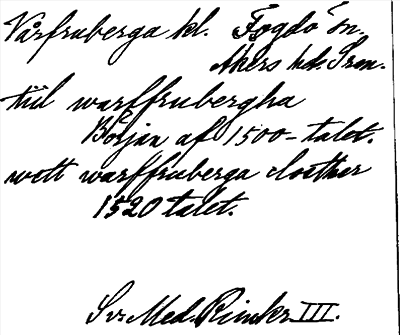 Vårfruberga kl. Fogdö sn.
Åkers hd. Srm.
tiil warffrubergha
Början af 1500-talet.
wott warffruberga closther
1520 talet.
Sv. Med. Rimkr. III.